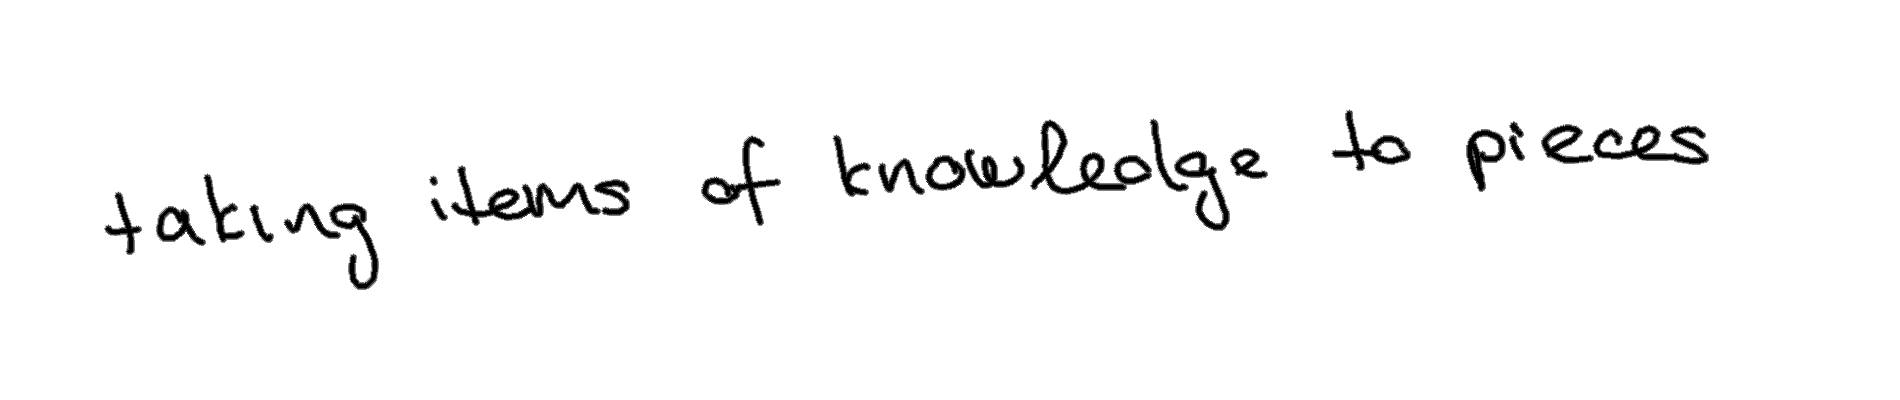 taking items of knowledge to pieces